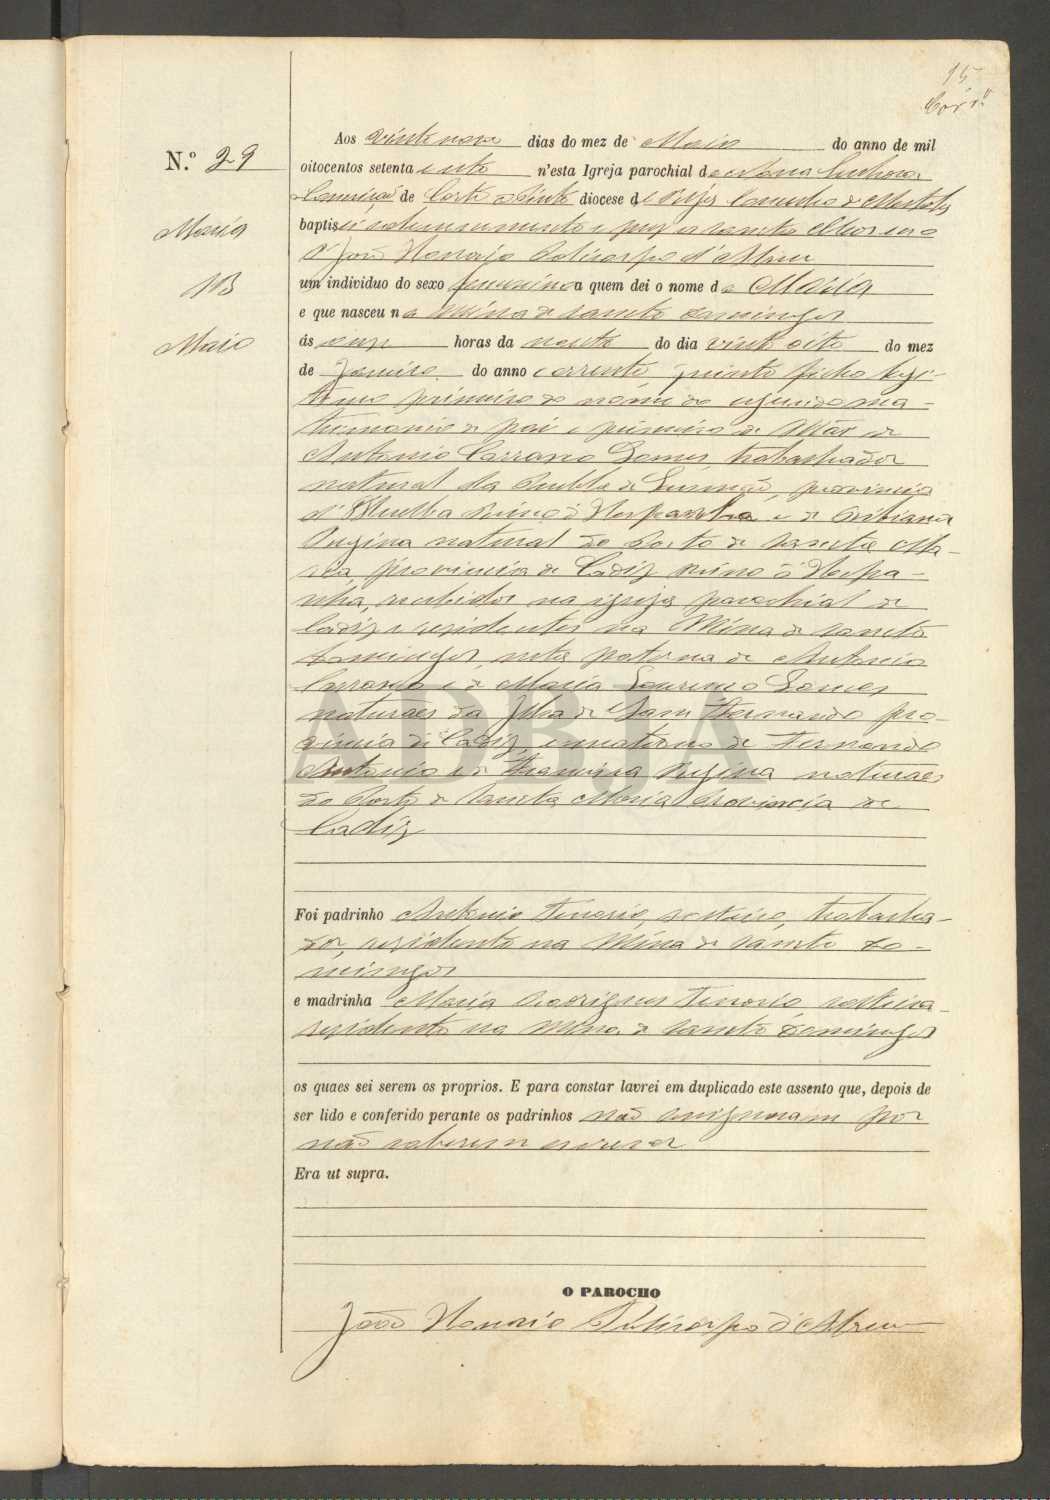 15
N.º 29
Maria
Maio
Aos vinte nove dias do mez de Maio do anno de mil
oitocentos setenta e oito n'esta Igreja parochial de Nossa Senhora
Conceição de Corte do Pinto diocese de Beja Concelho de Mertola
baptisei solemnemente e puz os sanctos
João Honorio Policarpo d'Abreu
um individuo do sexo femenino a quem dei o nome de Maria
e que nasceu na Mina de Sancto Domingos
ás onze horas da noute do dia vinte oito do mez
de Janeiro do anno corrente, filho legi-
timo primeiro do nome do segundo ma-
trimonio do pai e primeiro da Mãe de
Antonio Carrasco Gomes, trabalhador
natural da Puebla de Gusmão, provincia
d'Huelba Reino d'Hespanha e de Bibiana
Regina natural do Porto de Sancta Ma-
ria, provincia de Cadiz reino d'Hespa-
nha, recebidos na igreja parochial de
Cadiz e residentes na Mina de Sancto
Domingos, neta paterna de Antonio
Carrasco e de Maria Lourenço Gomes
naturaes da Ilha de Sam Fernando pro-
vincia de Cadiz, e materna de Fernando
Antonio e de Francisca Regina naturaes
do Porto de Sancta Maria Provincia de
Cadiz
Foi padrinho Antonio Tenorio, solteiro, trabalha-
dor, residente na Mina de Sancto Do-
mingos
e madrinha Maria Rodrigues Tenorio solteira
residente na Mina de Sancto Domingos
os quaes sei serem os proprios. E para constar lavrei em duplicado este assento que, depois de
ser lido e conferido perante os padrinhos não assignaram por
não saberem escrever
Era ut supra.
O PAROCHO
João Honorio Policarpo d'Abreu
ADBJA